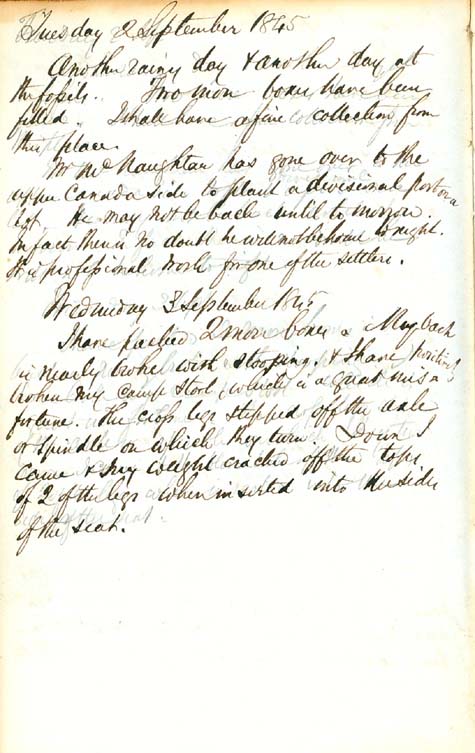 Tuesday 2 September 1845
Another rainy day & another day at
the fossils. Two more boxes have been
filled. I shall have a fine collection from
this place.
Mr McNaughtan has gone over to the
upper Canada side to plant a divisional post on a
lot. He may not be back until to morrow.
In fact there is no doubt he will not be home to night.
It is professional work for one of the settlers.
Wednesday 3 September 1845
I have packed 2 more boxes & My back
is nearly broke with stooping. & I have positively
broken my camp stool, which is a great mis a
fortune. The cross legs stepped off the axle
or spindle on which they turn. Down I
came & my weight cracked off the tops
of 2 of the legs when inserted into the sides
of the seat.